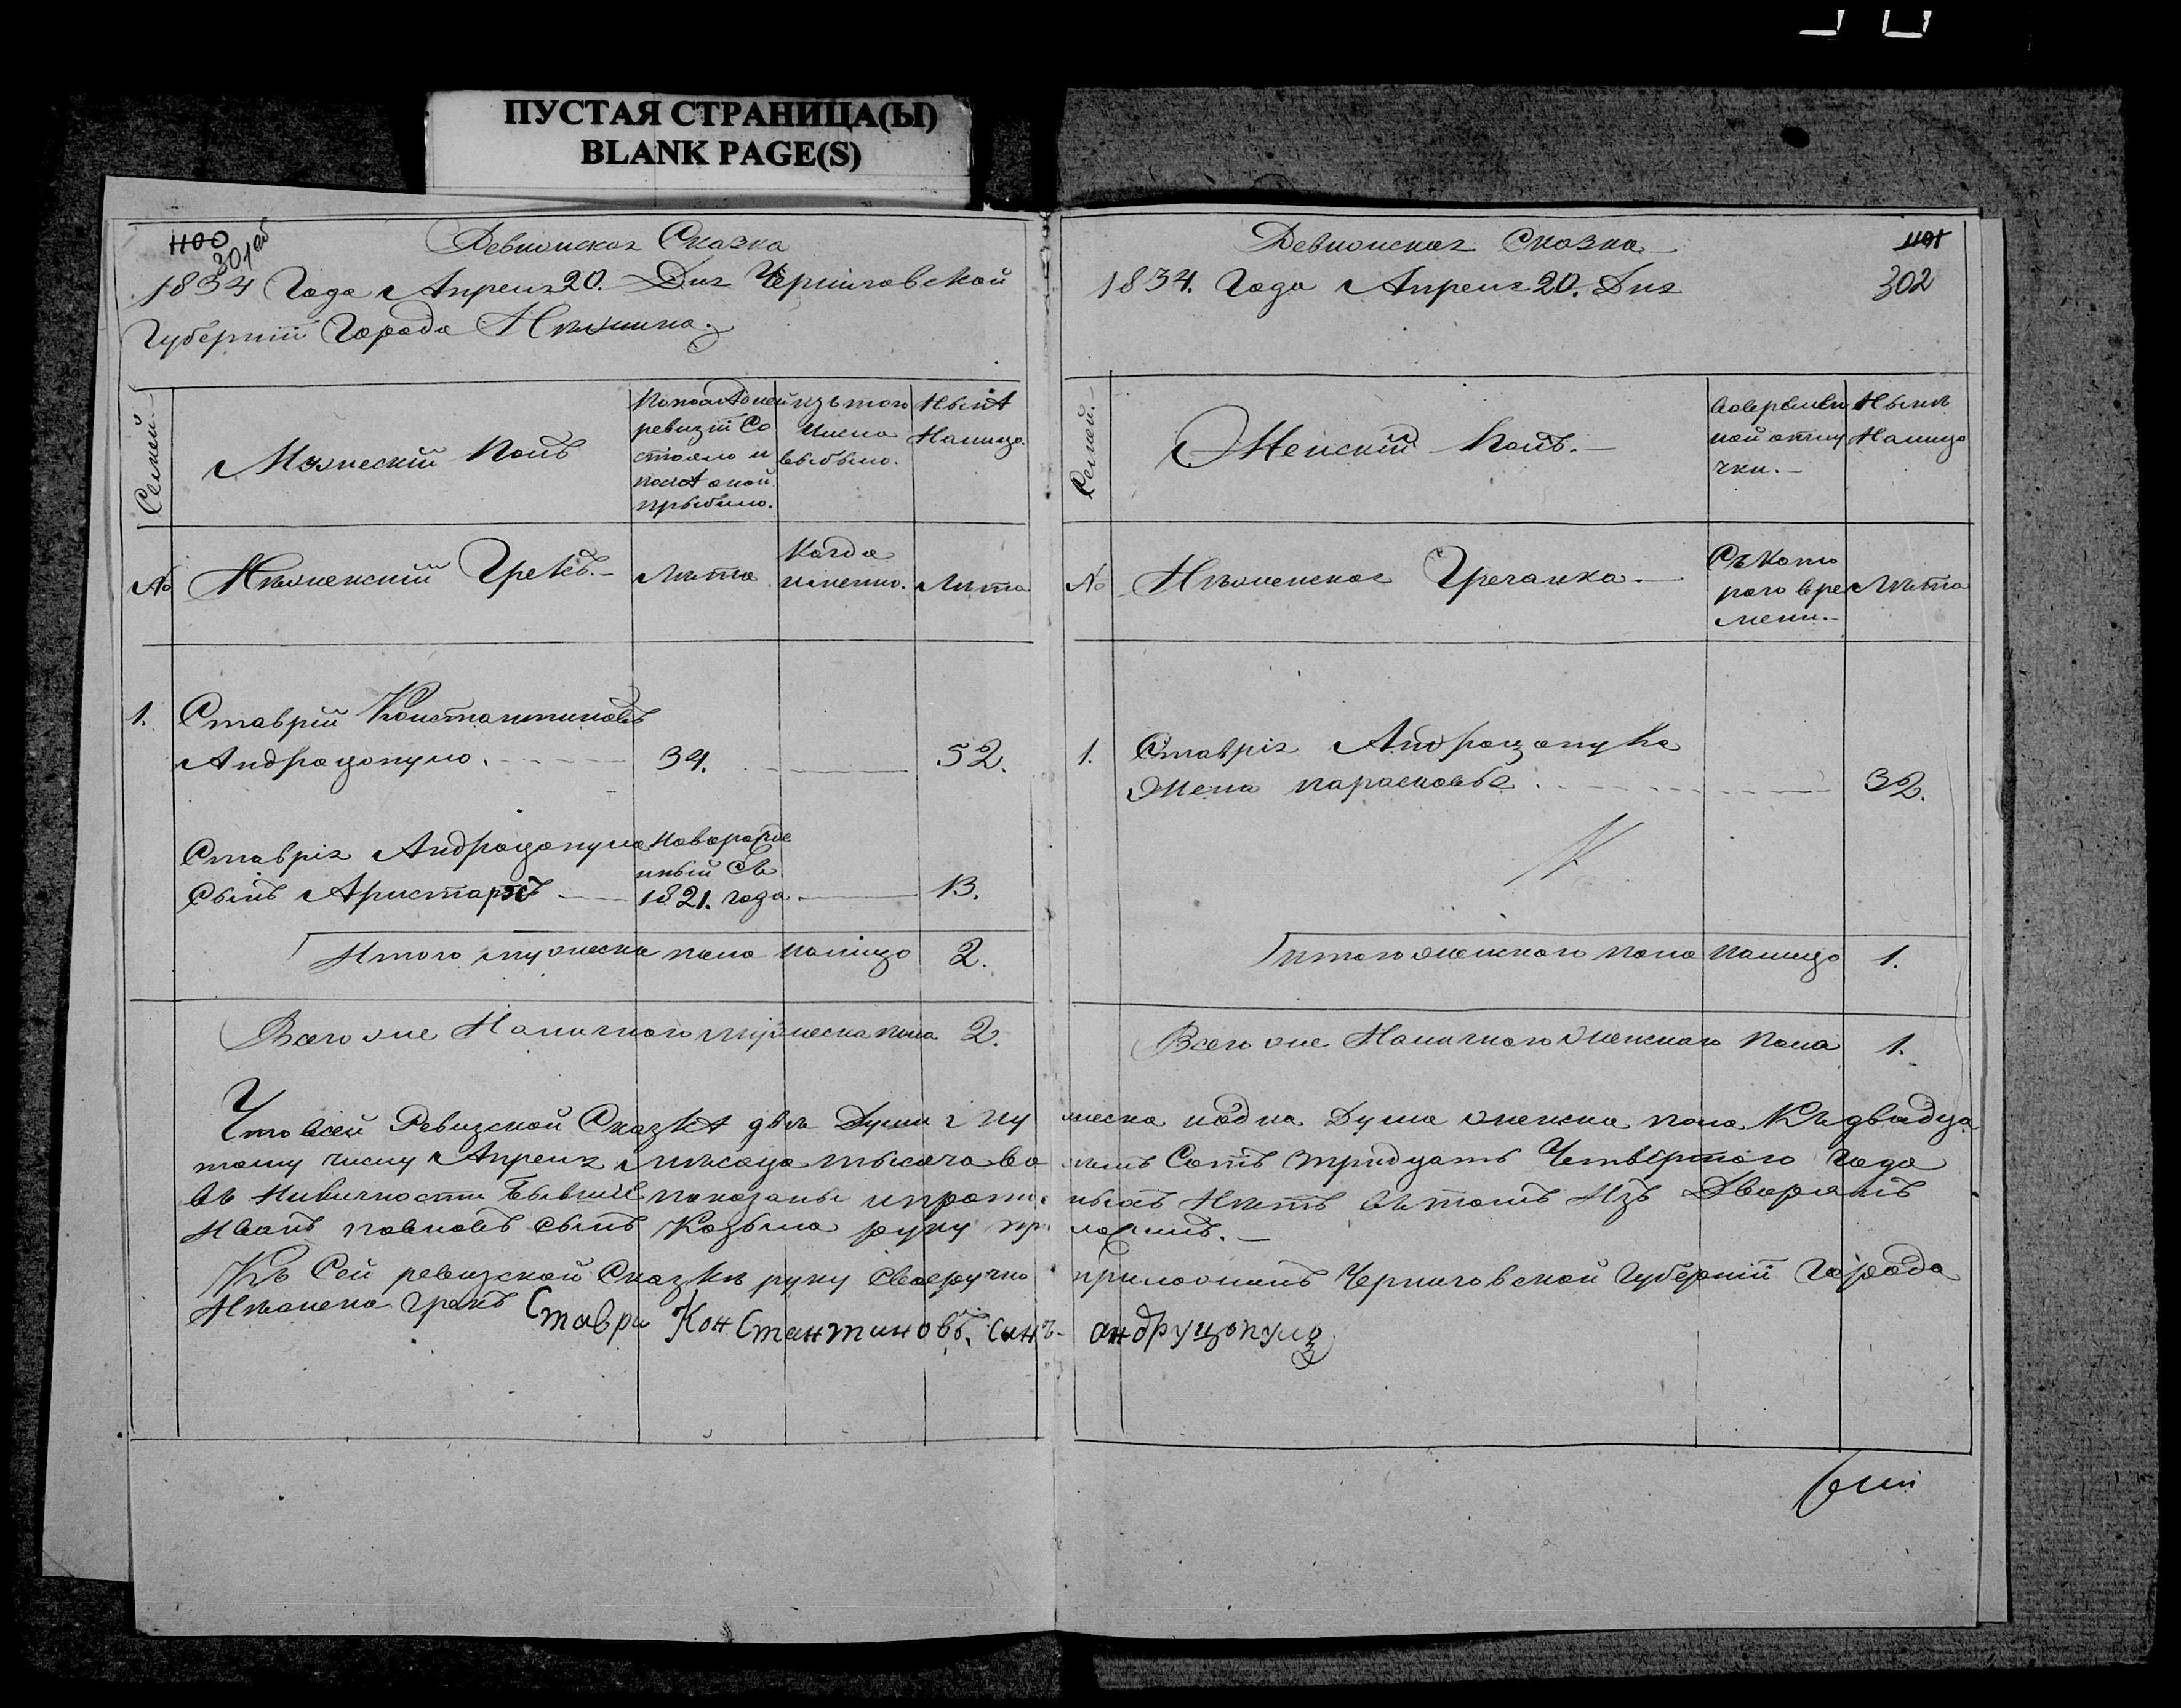 ПУСТАЯ СТРАНИЦА(Ы)
BLANK PAGE(S)
1100
301об
Ревизская Сказка
1834 Года Апреля 20. Дня Черниговской
Губерніи Города Нѣжина.
Семьи.
Мужескій Полъ
По последней
ревизіи Со
стояло и
после оной
прыбыло.
изътого
Числа
выбыло.
Ныне
Налицо.
№
Нѣженскій Грекъ.
Лѣта
Когда
именно.
Лѣта
1.
Ставрій Константиновъ
Андроцопуло. 34. 52.
Ставрія Андроцопула
Сынъ Аристархъ
Новорожде
нный съ
1821. года 13.
Итого мужеска пола налицо 2.
Всего же Наличного мужеска пола 2.
Ревизская Сказка
1101
302
1834. Года Апреля 20. Дня
Семьи.
Женскій Полъ.
Вовремен
ной отлу
чки.
Нынѣ
Налицо
№
Нѣженская Гречанка
Съ Кото
рого вре
мени.
Лѣта
1.
Ставрія Андроцопула
Жена парасковья 32.
Итого женского пола налицо 1.
Всего же Наличного женского Пола 1.
Что всей Ревизской Сказке двѣ Души му жеска иодна Душа женска пола Къ двадца
тому числу Апреля Мѣсяца тысяча во семь Сотъ тридцать Четвертого Года
въ Наличности бывшіе показаны ипропис ныхъ Нѣтъ въ томъ Изъ Дворянъ
Иванъ павловъ сынъ Козьма руку при ложилъ.
Къ Сей ревизской Сказкѣ руку своеручно приложилъ Черниговской Губерніи Города
Нѣжина грекъ Ставри Константиновъ. синъ андруцопуло